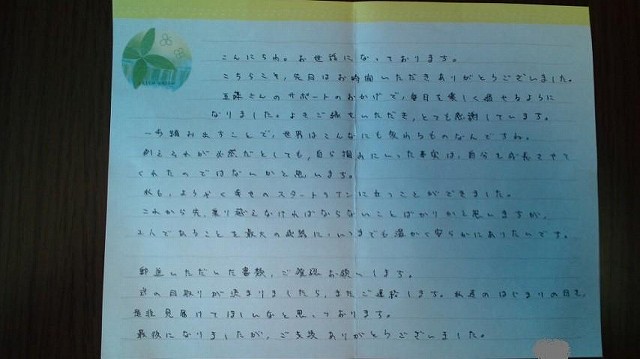 こんにちわ。お世話になっております。
こちらこそ、先日はお時間いただきありがとうございました。
さんのサポートのおかげで、毎日を楽しく過せるように
なりました。よきご縁をいただき、とっても感謝しています。
一歩踏み出すことで、世界はこんなにも変わるものなんですね。
例えそれが必然だとしても、自ら掴みにいった事実は、自分を成長させて
くれたのではないかと思います。
私も、ようやく幸せのスタートラインに立つことができました。
これから先、乗り越えなければならないことばかりかと思いますが、
2人であることを最大の武器に、いつまでも温かく安らかにありたいです。
郵送いただいた書類、ご確認お願いします。
の日取りが決まりましたら、またご連絡します。私達のはじまりの日を、
是非見届けてほしいなと思っております。
最後になりましたが、ご支援ありがとうございました。